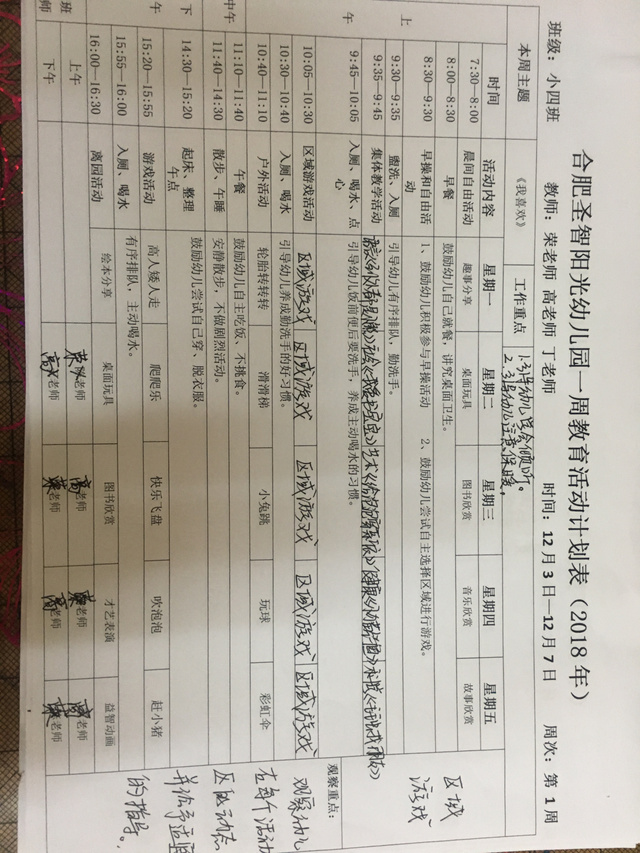 合肥圣智阳光幼儿园一周教育活动计划表（2018 年）
班级：小四班 教师：荣老师 高老师 丁老师 时间：12 月 3 日—12 月 7 日 周次：第 1 周
本周主题 《我喜欢》 工作重点 1.引导幼儿学会倾听。
2.引导幼儿注意保暖。
时间 活动内容 星期一 星期二 星期三 星期四 星期五
上
午
7:30—8:00 晨间自由活动 趣事分享 桌面玩具 图书欣赏 音乐欣赏 故事欣赏
8:00—8:30 早餐 鼓励幼儿自己就餐，讲究桌面卫生。
8:30—9:30 早操和自由活动 1、鼓励幼儿积极参与早操活动 2、鼓励幼儿尝试自主选择区域进行游戏。
9:30—9:35 盥洗、入厕 引导幼儿有序排队、勤洗手。
9:35—9:45 集体教学活动
9:45—10:05 入厕、喝水、点心 引导幼儿饭前便后要洗手，养成主动喝水的习惯。
10:05—10:30 区域游戏活动 区域游戏 区域游戏 区域游戏 区域游戏 区域游戏
10:30—10:40 入厕、喝水 引导幼儿养成勤洗手的好习惯。
10:40—11:10 户外活动 轮胎转转转 滑滑梯 小兔跳 玩球 彩虹伞
中午
11:10—11:40 午餐 鼓励幼儿自主吃饭、不挑食。
11:40—14:30 散步、午睡 安静散步，不做剧烈活动。
下
午
14:30—15:20 起床、整理 午点 鼓励幼儿尝试自己穿、脱衣服。
15:20—15:55 游戏活动 高人矮人走 爬爬乐 快乐飞盘 吹泡泡 赶小猪
15:55—16:00 入厕、喝水 有序排队，主动喝水。
16:00—16:30 离园活动 绘本分享 桌面玩具 图书欣赏 才艺表演 益智动画
班
师
上午 老师 高老师 老师 老师
下午 老师 老师 老师 老师
区域
游戏
观察重点：
观察幼儿
在每个活动
区的动态
并给予适当
的指导。